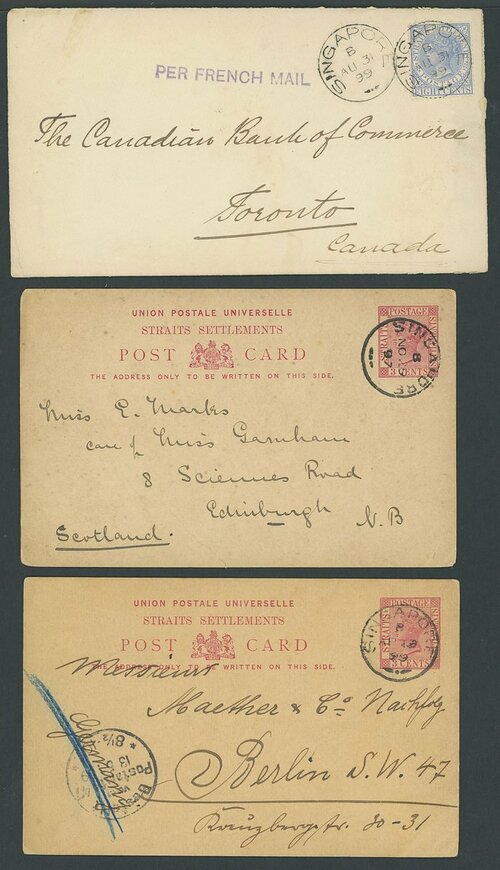 PER FRENCH MAIL
SINGAPORE
B
AU 31
99
SINGAPORE
B
AU 31
99
EIGHT CENTS
The Canadian Bank of Commerce
Toronto
Canada
UNION POSTALE UNIVERSELLE
STRAITS SETTLEMENTS
POST CARD
THE ADDRESS ONLY TO BE WRITTEN ON THIS SIDE.
STRAITS
POSTAGE
3 CENTS
SINGAPORE
B
NO 9
97
Miss E. Marks
care of Miss Garnham
8 Sciennes Road
Edinburgh N.B
Scotland.
UNION POSTALE UNIVERSELLE
STRAITS SETTLEMENTS
POST CARD
THE ADDRESS ONLY TO BE WRITTEN ON THIS SIDE.
STRAITS
POSTAGE
3 CENTS
SINGAPORE
B
99
Messieurs
Maether & Co Nachflg
Berlin S.W. 47
Kreuzbergstr. 30-31